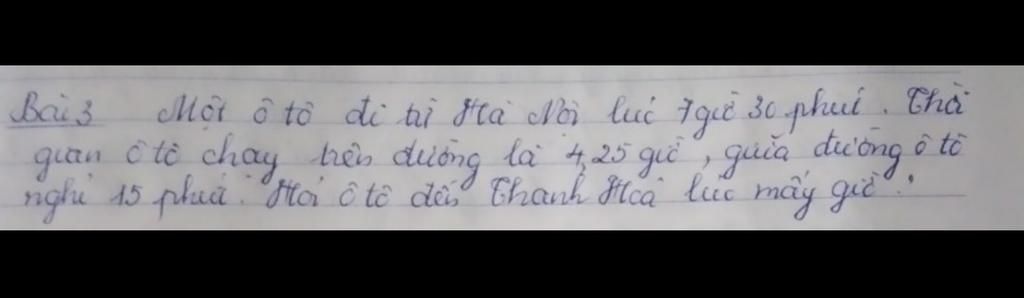 Bài 3 Một ô tô đi từ Hà Nội lúc 7 giờ 30 phút. Thời
gian ô tô chạy trên đường là 4,25 giờ, giữa đường ô tô
nghỉ 15 phút. Hỏi ô tô đến Thanh Hoá lúc mấy giờ?